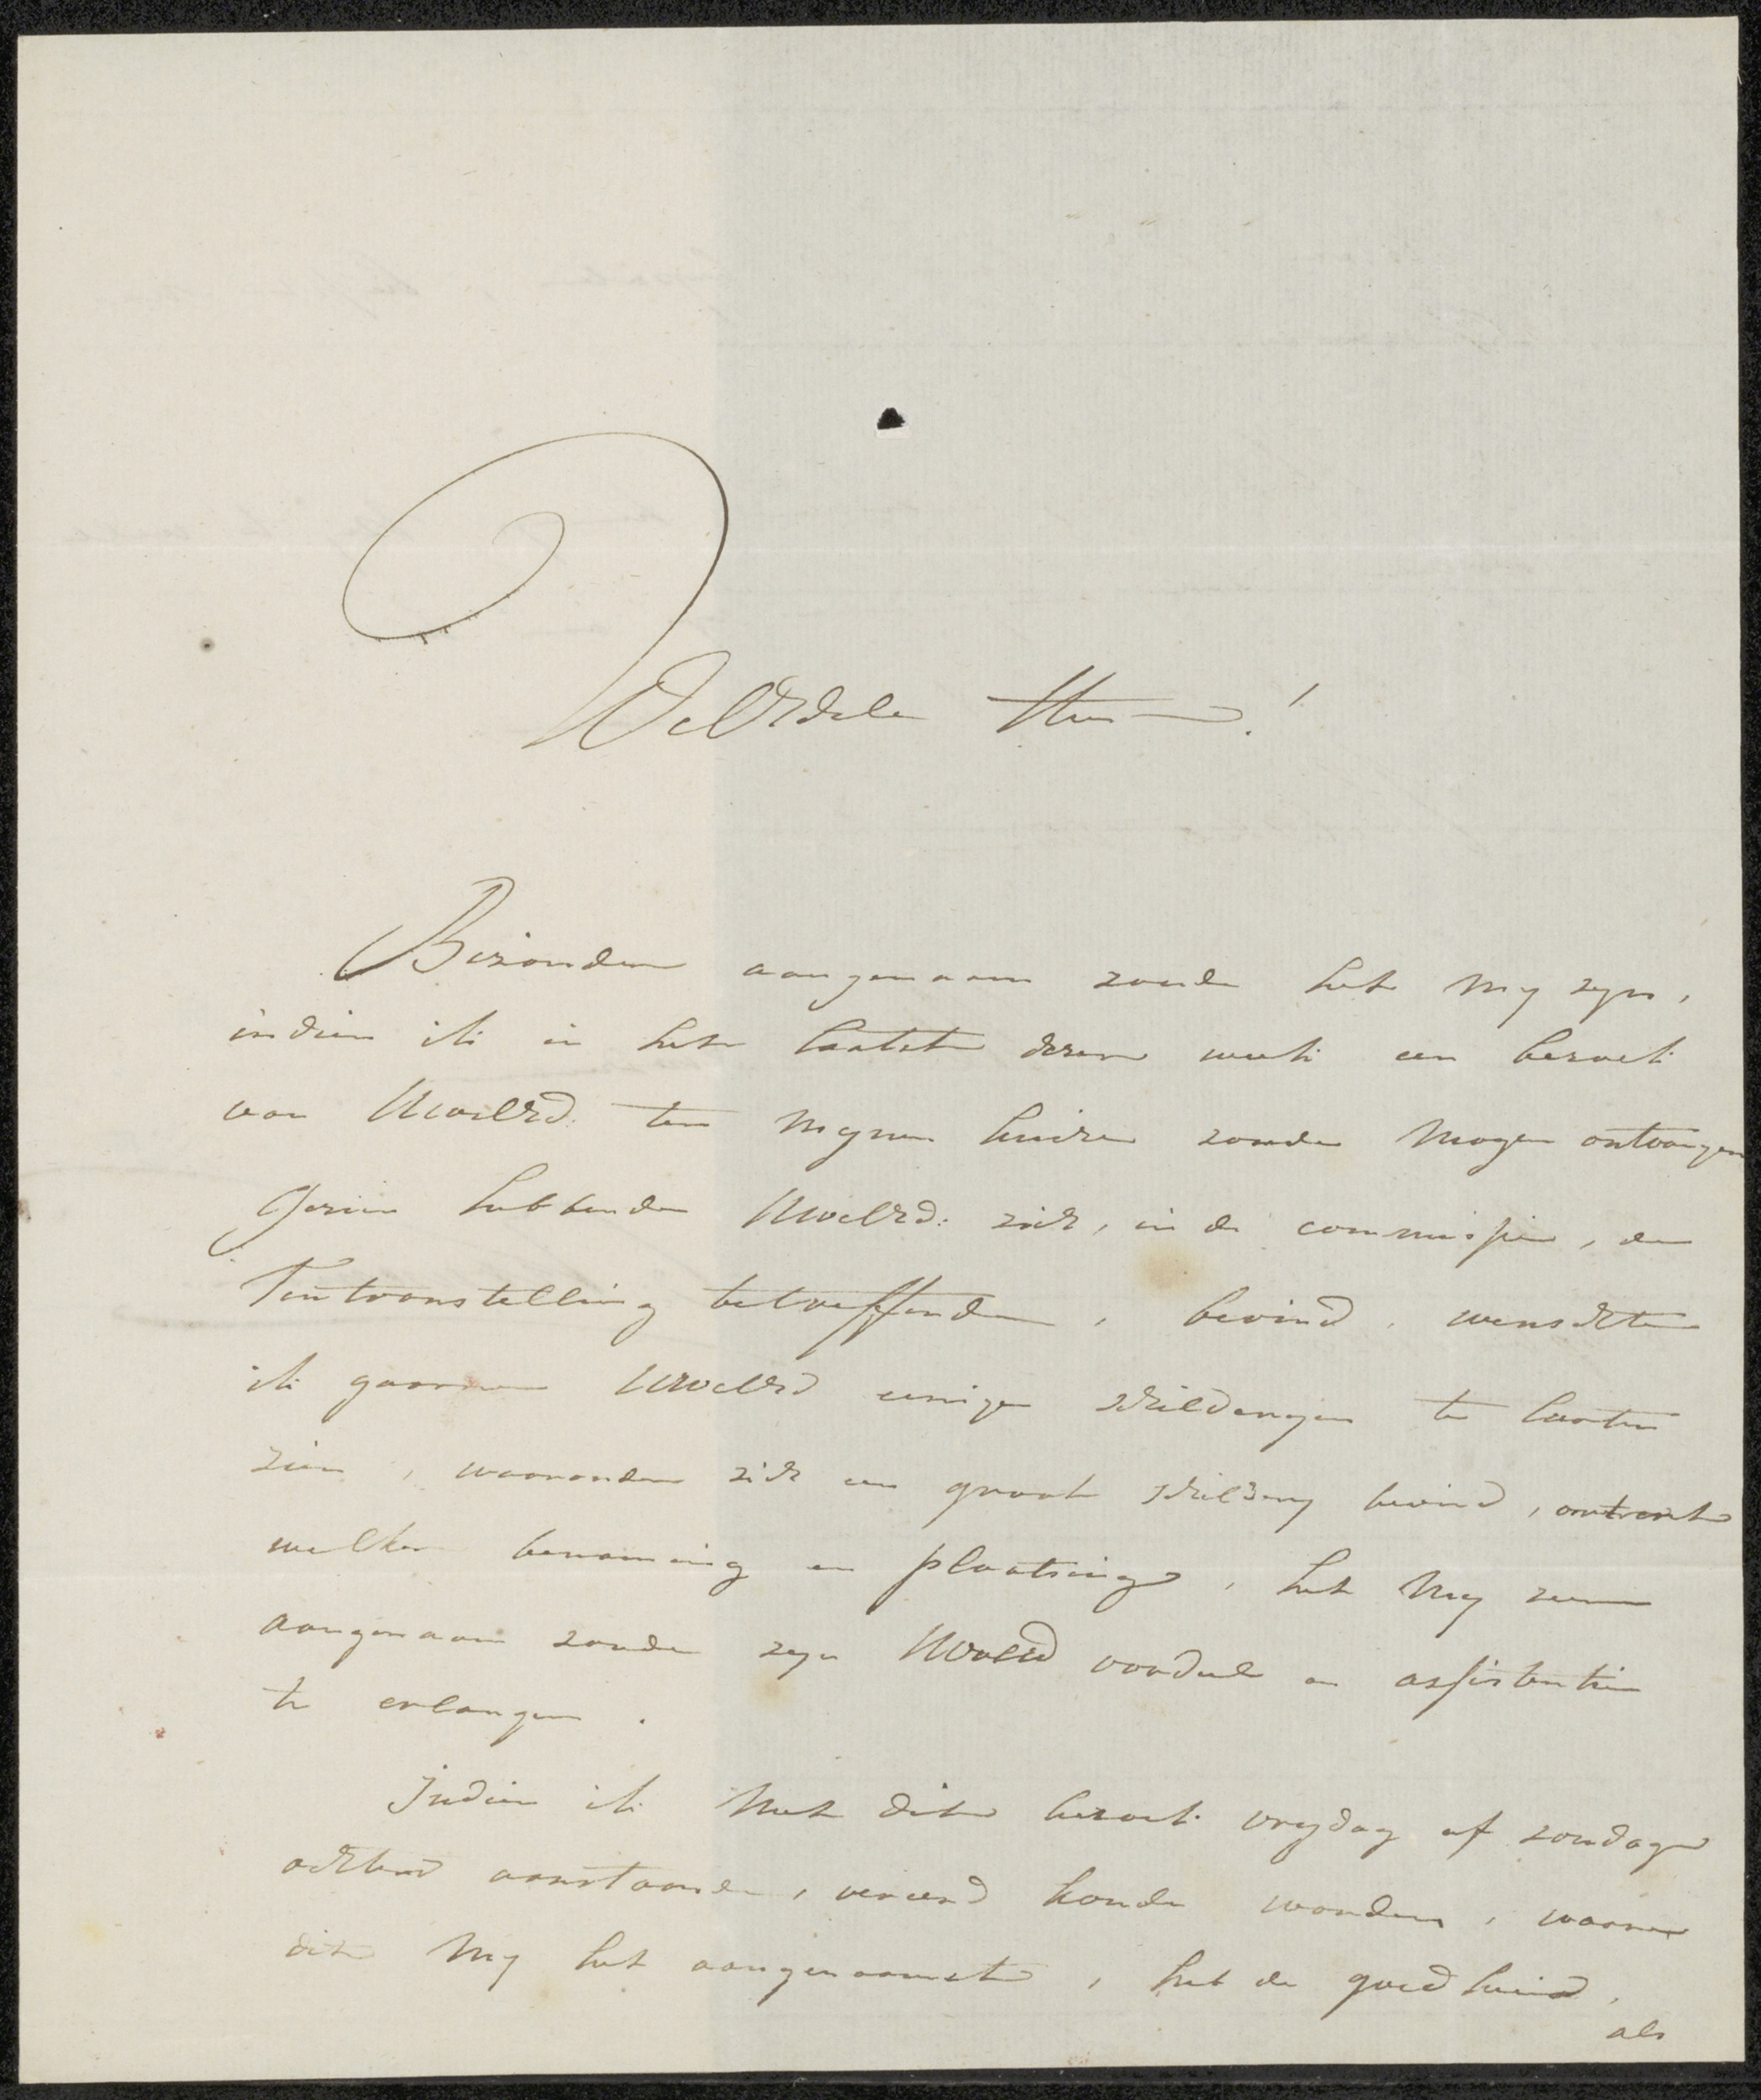 WelEdele Heer!
Bizonder aangenaam zoude het my zyn,
indien ik in het laatste dezer week een bezoek
van UwelEd. ten mynen huize zoude mogen ontvangen
Gezien hebbende UwelEd: zich, in de commissie, de
Tentoonstelling betreffende, bevind, wenschte
ik gaarne UwelEd eenige schilderyen te laaten
zien, waaronder zich een groot schildery bevind, omtrent
welker benaming en plaatsing, het my zeer
aangenaam zoude zyn UwelEd oordeel en assistentie
te erlangen.
Indien ik met dit bezoek vrydag of zondag
ochtend aanstaande, vereerd konde worden, waare
dit my het aangenaamste, heb de goedheid,
als